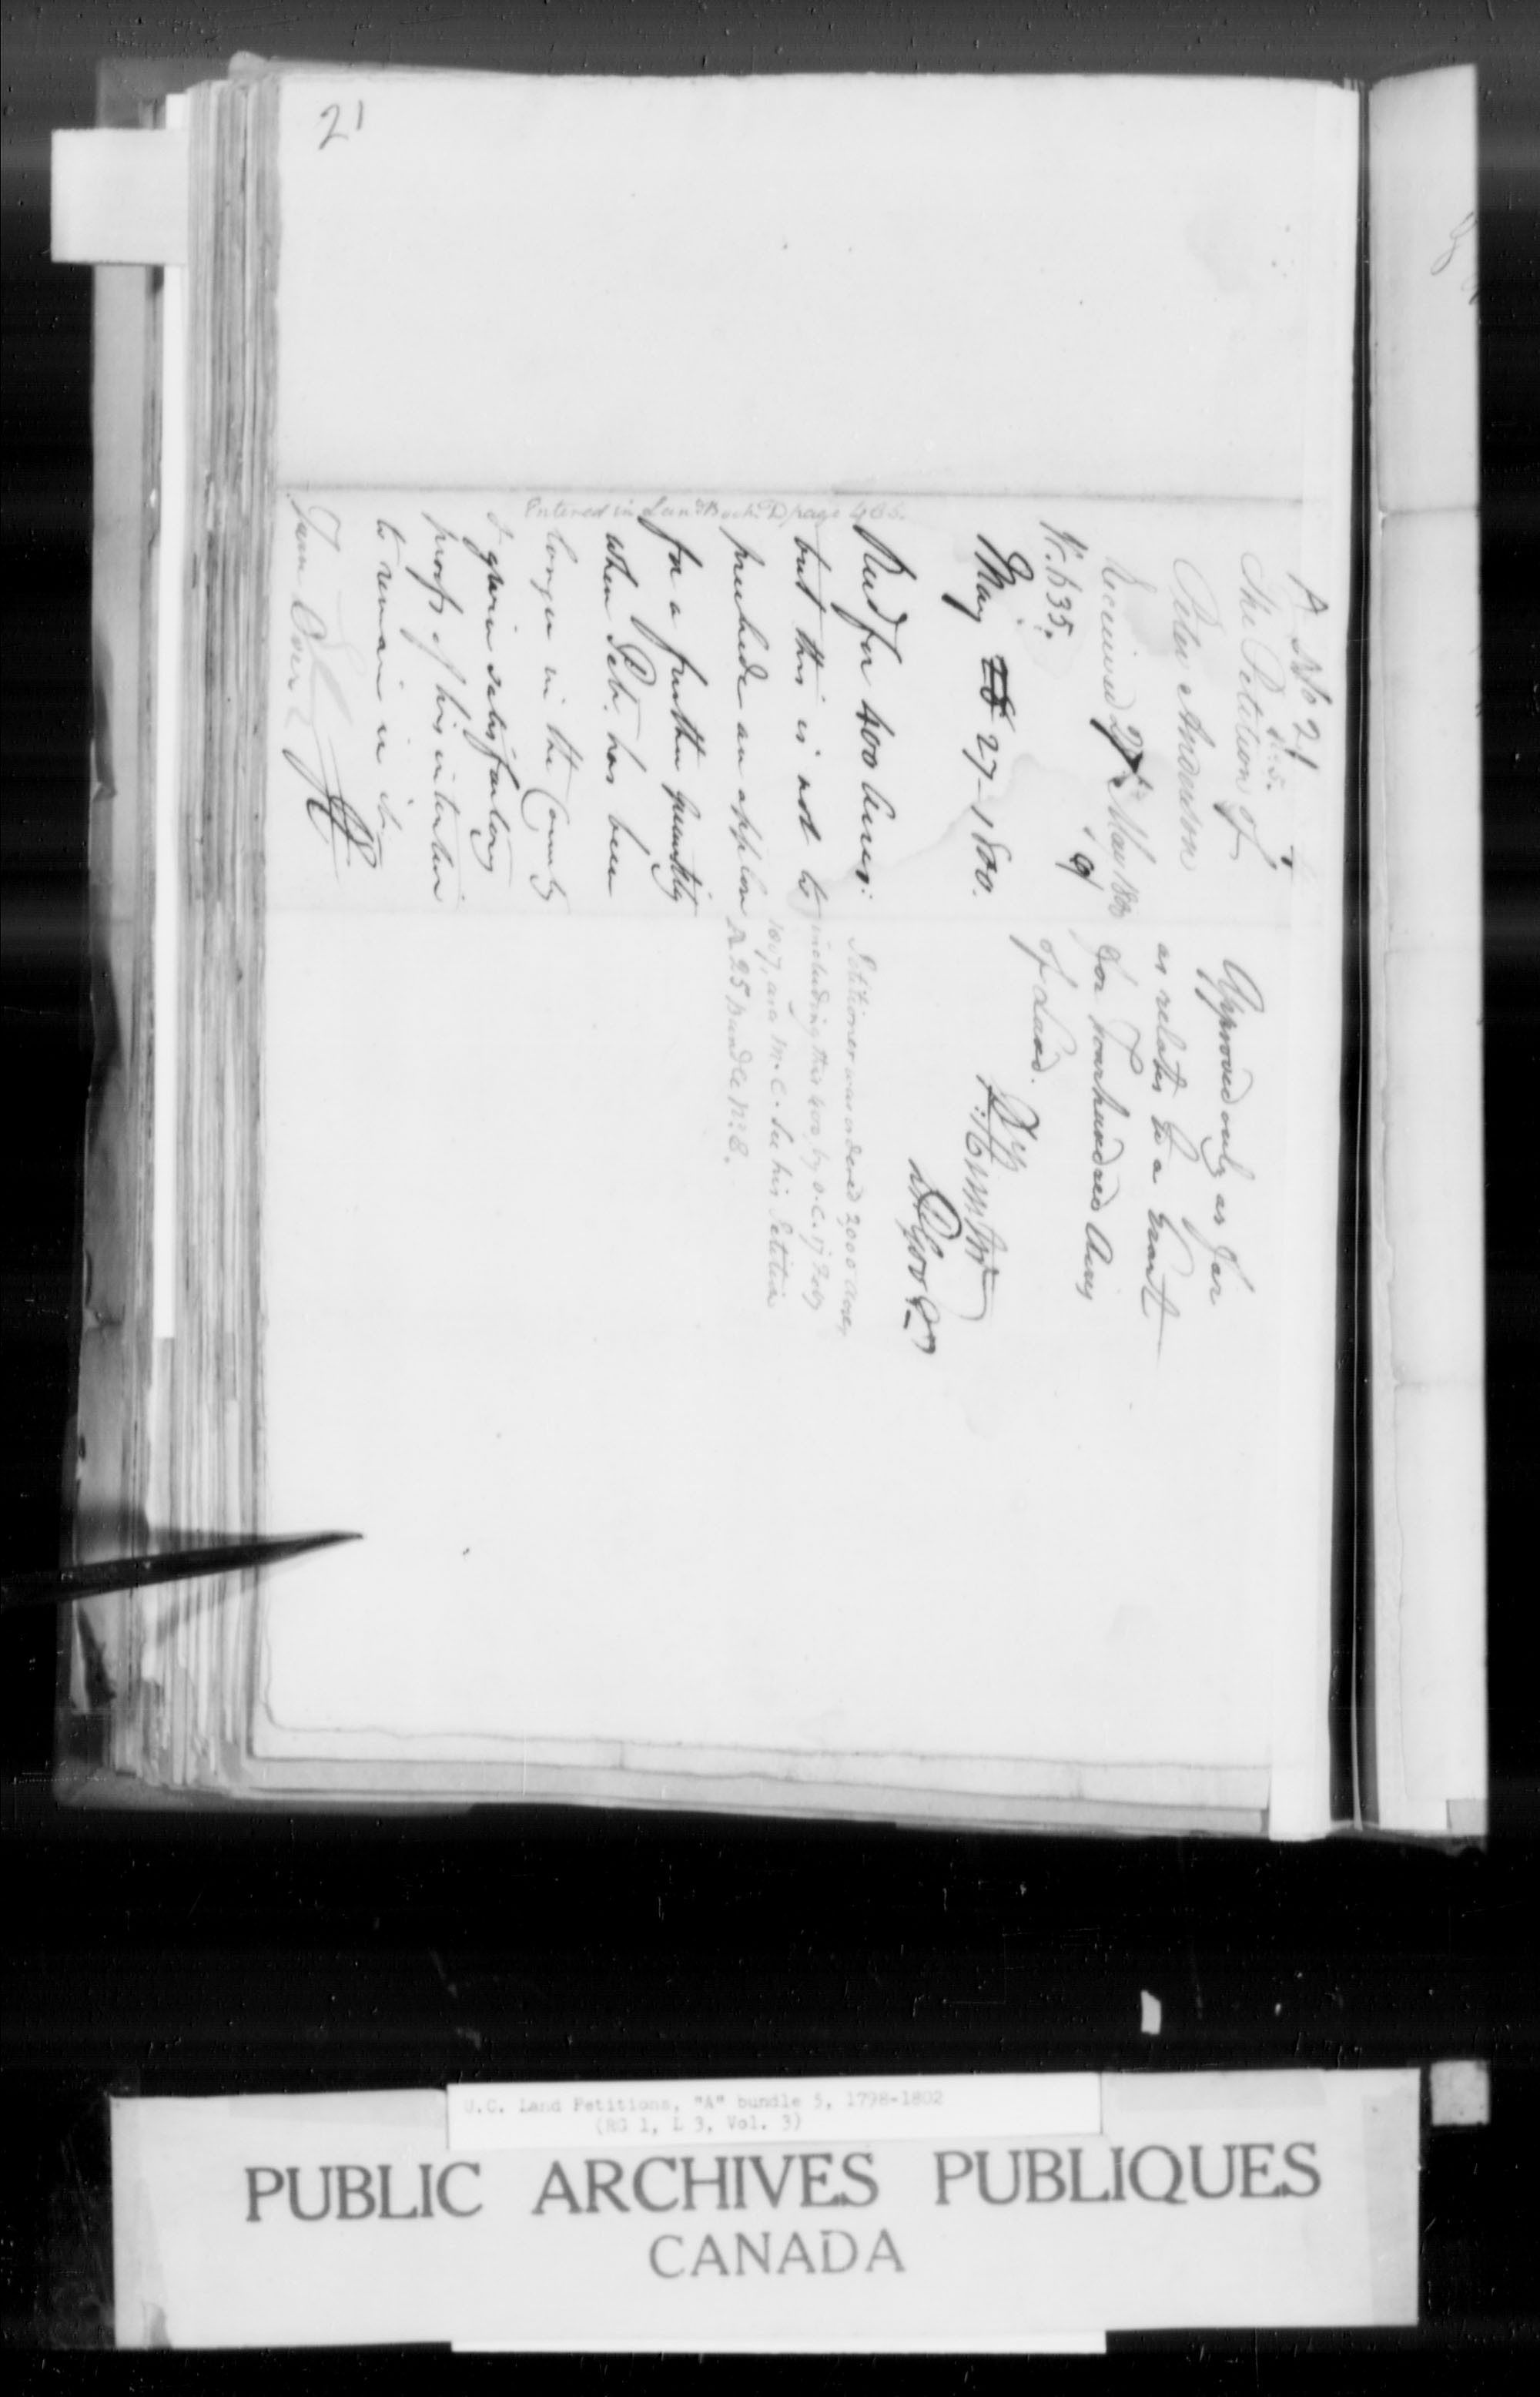 21
A No 21
N:5.
The Petition of
Peter Anderson
Received 27th May 1800
N. 635.
May 27 - 1800.
Recd for 400 Acres:
but this is not to
preclude an applion
for a further quantity
when Petr. has been
longer in the Country
& given satisfactory
proofs of his intention
to remain in it.
Entered in Land Book D page 466.
Approved only as far
as relates to a Grant
for four hundred Acres
of Land.
P.H.
Petitioner was ordered 2000 Acres,
including this 400, by O.C. 17 July
1807, and M.C. See his Petition
A 25 Bundle No: 8.
U.C. Land Petitions, "A" bundle 5, 1798-1802
(RG 1, L 3, Vol. 3)
PUBLIC ARCHIVES PUBLIQUES
CANADA